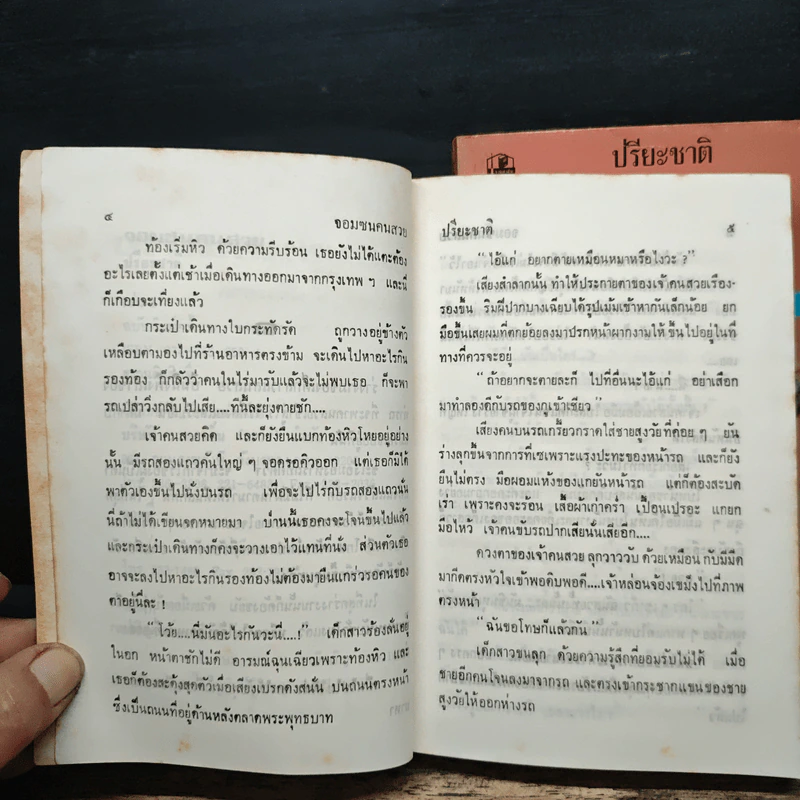 ๔ จอมซนคนสวย
ท้องเริ่มหิว ด้วยความรีบร้อน เธอยังไม่ได้แตะต้อง
อะไรเลยตั้งแต่เช้าเมื่อเดินทางออกมาจากกรุงเทพ ฯ และนี่
ก็เกือบจะเที่ยงแล้ว
กระเป๋าเดินทางใบกระทัดรัด ถูกวางอยู่ข้างตัว
เหลือบตามองไปที่ร้านอาหารตรงข้าม จะเดินไปหาอะไรกิน
รองท้อง ก็กลัวว่าคนในไร่มารับแล้วจะไม่พบเธอ ก็จะพา
รถเปล่าวิ่งกลับไปเสีย....ทีนี้ละยุ่งตายชัก....
เจ้าคนสวยคิด และก็ยังยืนแบกท้องหิวโหยอยู่อย่าง
นั้น มีรถสองแถวคันใหญ่ ๆ จอดรอคิวออก แต่เธอก็มิได้
พาตัวเองขึ้นไปนั่งบนรถ เพื่อจะไปไร่กับรถสองแถวนั่น
นี่ถ้าไม่ได้เขียนจดหมายมา ป่านนี้เธอคงจะโจนขึ้นไปแล้ว
และกระเป๋าเดินทางก็คงจะวางเอาไว้แทนที่นั่ง ส่วนตัวเธอ
อาจจะลงไปหาอะไรกินรองท้องไม่ต้องมายืนแกร่วรอคนของ
ตาอยู่นี่ละ !
"โว้ย....นี่มันอะไรกันวะนี่....!" เด็กสาวร้องลั่นอยู่
ในอก หน้าตาชักไม่ดี อารมณ์ฉุนเฉียวเพราะท้องหิว และ
เธอก็ต้องสะดุ้งสุดตัวเมื่อเสียงเบรกดังสนั่น บนถนนตรงหน้า
ซึ่งเป็นถนนที่อยู่ด้านหลังตลาดพระพุทธบาท
ปรียะชาติ ๕
"ไอ้แก่ อยากตายเหมือนหมาหรือไงวะ ?"
เสียงสำลากนั้น ทำให้ประกายตาของเจ้าคนสวยเรือง-
รองขึ้น ริมฝีปากบางเฉียบได้รูปเม้มเข้าหากันเล็กน้อย ยก
มือขึ้นเสยผมที่ตกย้อยลงมาปรกหน้าผากงามให้ขึ้นไปอยู่ในที่
ทางที่ควรจะอยู่
"ถ้าอยากจะตายละก็ ไปที่อื่นนะไอ้แก่ อย่าเสือก
มาทำลองดีกับรถของกูเข้าเชียว"
เสียงคนบนรถเกรี้ยวกราดใส่ชายสูงวัยที่ค่อย ๆ ยัน
ร่างลุกขึ้นจากการที่เซเพราะแรงปะทะของหน้ารถ และก็ยัง
ยืนไม่ตรง มือผอมแห้งของแกยันหน้ารถ แต่ก็ต้องสะบัด
เร่า เพราะคงจะร้อน เสื้อผ้าเก่าคร่ำ เปื้อนเปรอะ แกยก
มือไหว้ เจ้าคนขับรถปากเสียนั่นเสียอีก....
ดวงตาของเจ้าคนสวย ลุกวาววับ ด้วยเหมือน กับมีมีด
มากีดตรงหัวใจเข้าพอดิบพอดี....เจ้าหล่อนจ้องเขม็งไปที่ภาพ
ตรงหน้า
"ฉันขอโทษก็แล้วกัน"
เด็กสาวขนลุก ด้วยความรู้สึกที่ยอมรับไม่ได้ เมื่อ
ชายอีกคนโจนลงมาจากรถ และตรงเข้ากระชากแขนของชาย
สูงวัยให้ออกห่างรถ
ปรียะชาติ